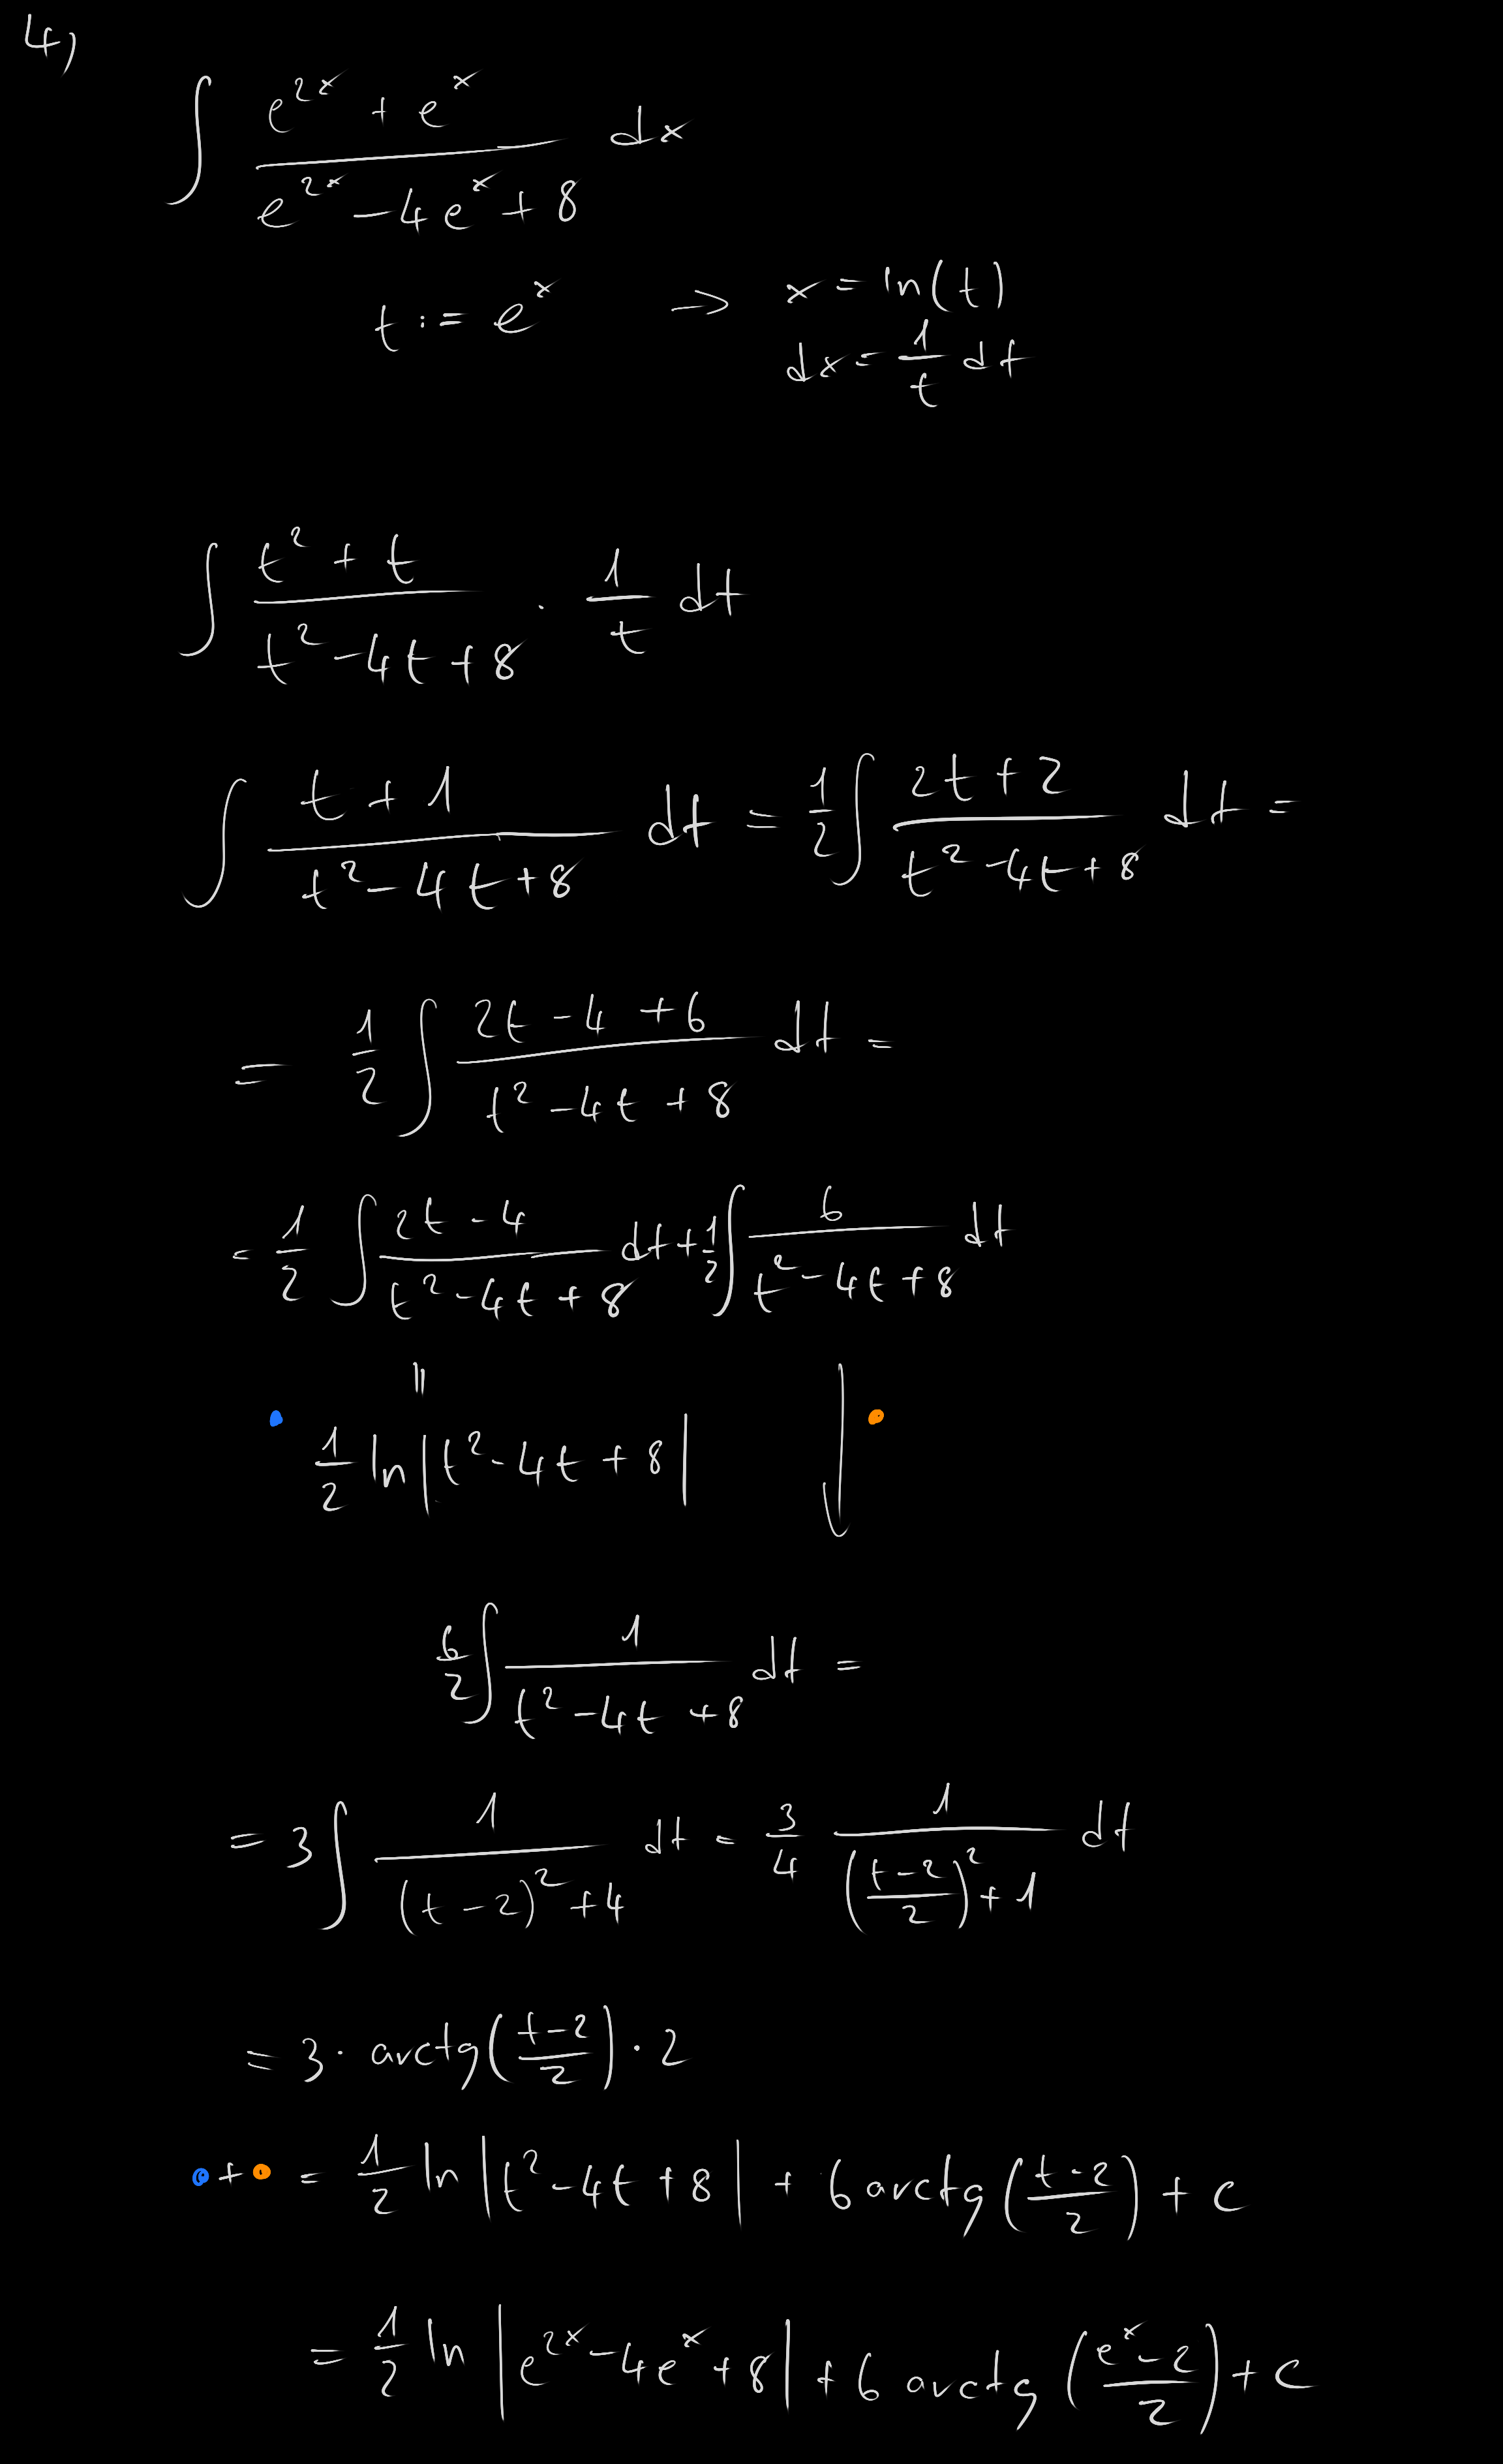 4)
∫ (e^{2x} + e^x)/(e^{2x} - 4e^x + 8) dx
t := e^x → x = ln(t)
dx = 1/t dt
∫ (t² + t)/(t² - 4t + 8) · 1/t dt
∫ (t + 1)/(t² - 4t + 8) dt = 1/2 ∫ (2t + 2)/(t² - 4t + 8) dt =
= 1/2 ∫ (2t - 4 + 6)/(t² - 4t + 8) dt =
= 1/2 ∫ (2t - 4)/(t² - 4t + 8) dt + 1/2 ∫ 6/(t² - 4t + 8) dt
||
1/2 ln|t² - 4t + 8|
6/2 ∫ 1/(t² - 4t + 8) dt =
= 3 ∫ 1/((t - 2)² + 4) dt = 3/4 1/(((t - 2)/2)² + 1) dt
= 3 · arctg((t - 2)/2) · 2
• + • = 1/2 ln|t² - 4t + 8| + 6 arctg((t - 2)/2) + c
= 1/2 ln|e^{2x} - 4e^x + 8| + 6 arctg((e^x - 2)/2) + c